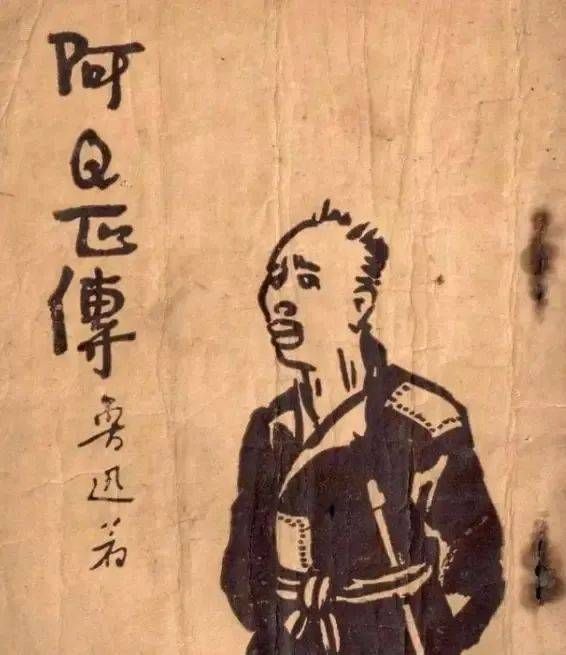 阿Q正傳
魯迅著